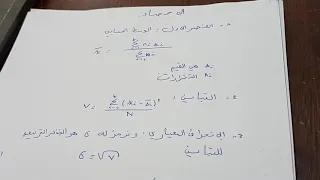 1- العنصر الأول: الوسط الحسابي
x̄ = Σ nᵢ xᵢ / Σ nᵢ
xᵢ هي القيم
nᵢ التكرارات
2- التباين: V = Σ (xᵢ - x̄)² / N
3- الانحراف المعياري: ونرمز له σ هو الجذر التربيعي
للتباين σ = √V